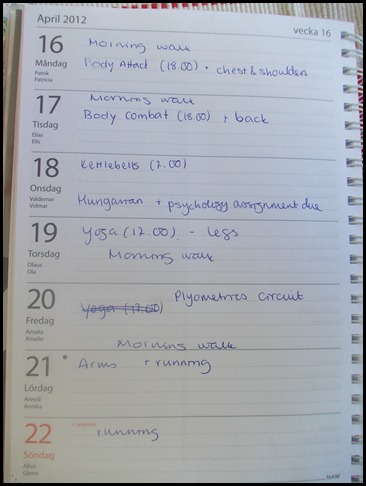 April 2012
vecka 16
16 Morning walk
Måndag Body Attack (18.00) + chest & shoulders
Patrik
Patricia
17 Morning walk
Tisdag Body Combat (18.00) + back
Elias
Elis
18 Kettlebells (7.00)
Onsdag
Valdemar Hungarian + psychology assignment due
Volmar
19 Yoga (17.00) - legs
Torsdag Morning walk
Olaus
Ola
20 Plyometrics Circuit
Fredag Yoga (17.00)
Amalia
Amelie Morning walk
21 Arms + running
Lördag
Anneli
Annika
22 running
Söndag
Allan
Glenn